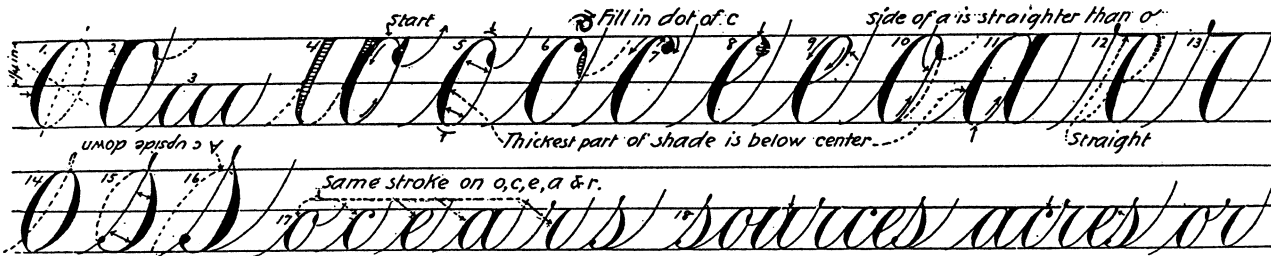 Start Fill in dot of c Side of a is straighter than o
1. 2 3 4 5 6 7 8 9 10 11 12 13
Thickest part of shade is below center Straight
A c upside down
Same stroke on o,c,e,a & r.
14 15 16 17 o c e a r s 18 sources acres or